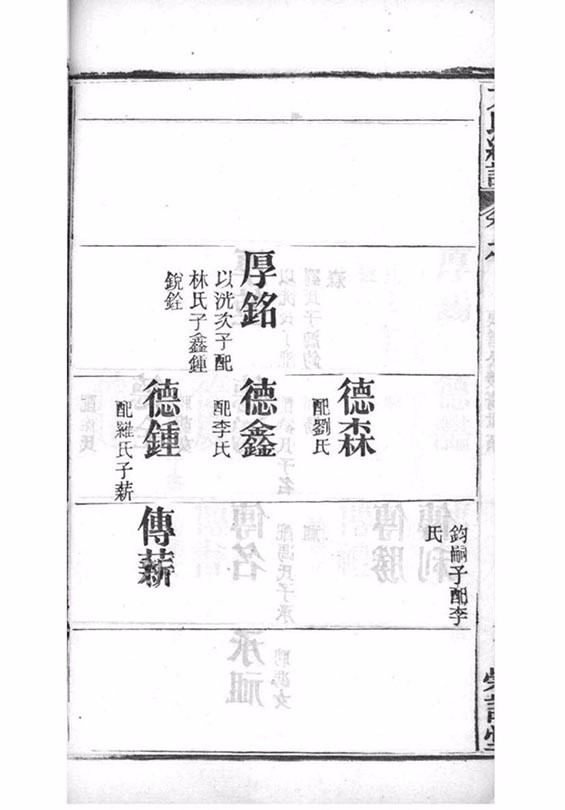 鈞嗣子配李
氏
德森
配劉氏
厚銘
以洸次子配
林氏子鑫鍾
銳銓
德鑫
配李氏
德鍾
配羅氏子薪
傳薪